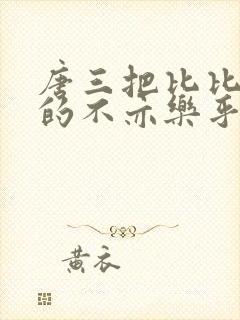 唐三把比比
的不亦樂乎
黄衣